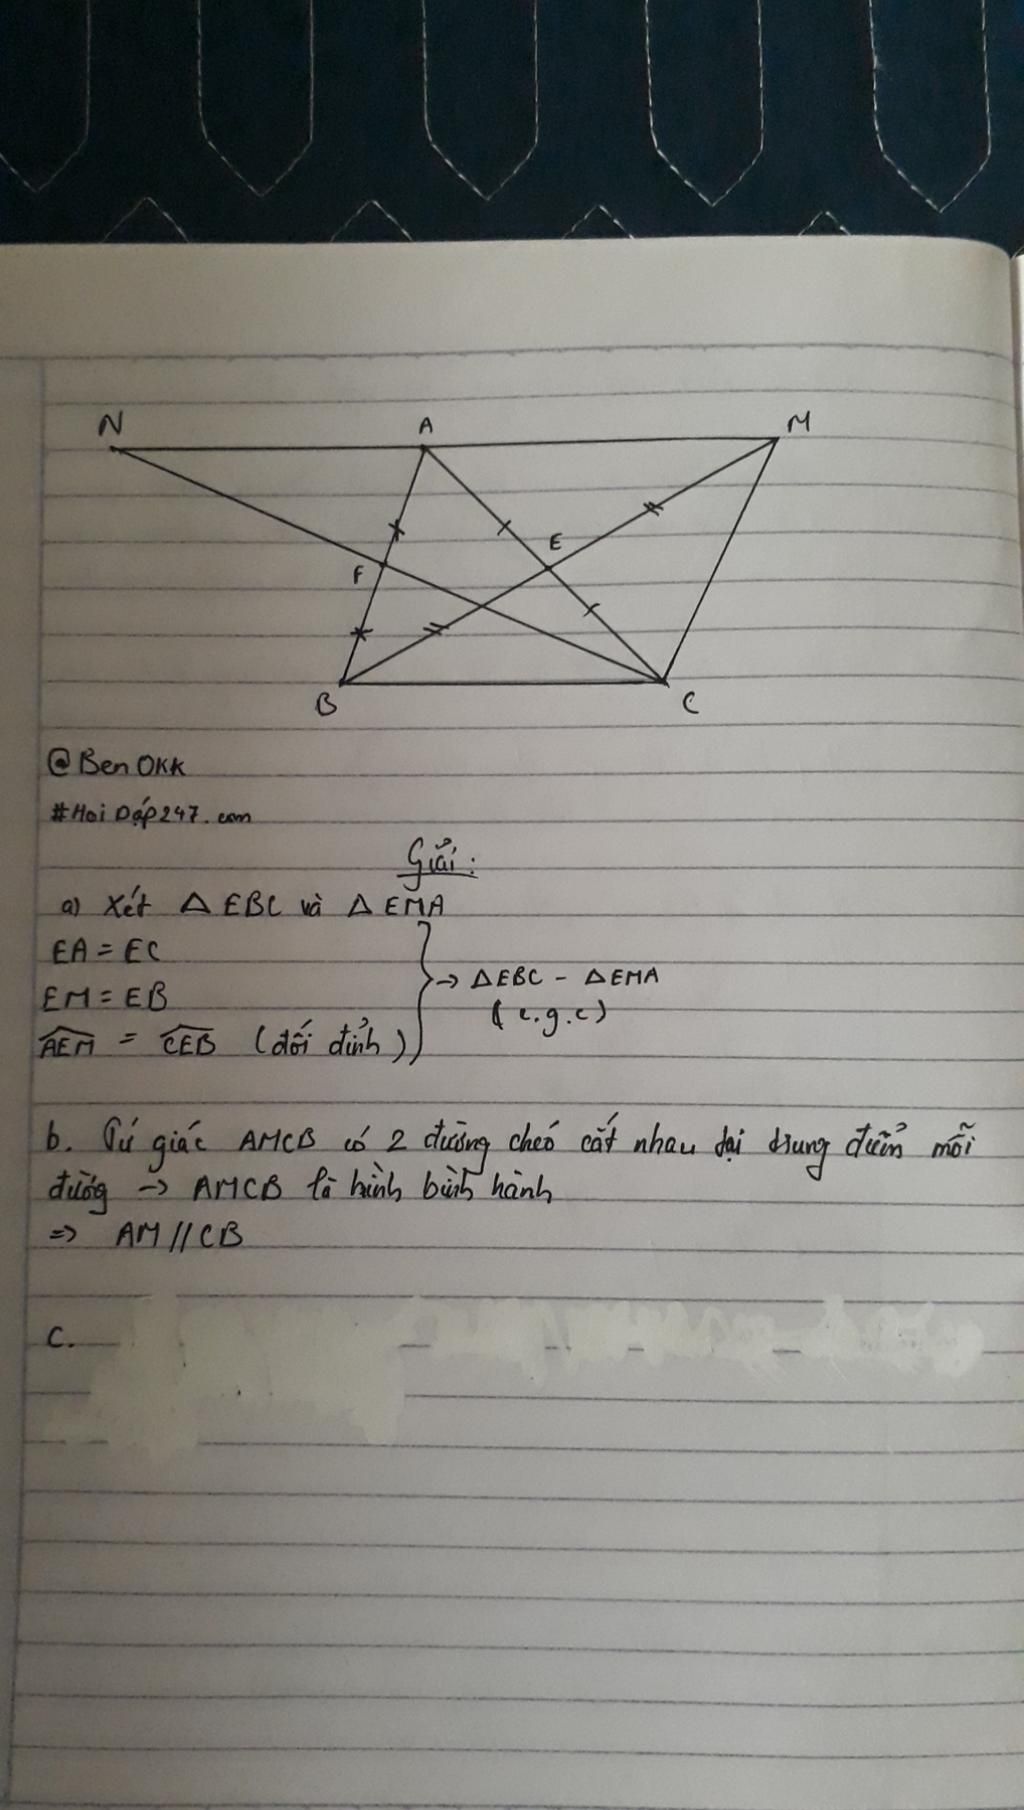 N A M
E
F
B C
@Ben OKK
#Hoi Dấp247.com
Giải:
a) Xét △ EBC và △ EMA
EA = EC
EM = EB
→ △EBC - △EMA
(c.g.c)
AEM = CEB (đối đỉnh)
b. Tứ giác AMCB có 2 đường chéo cắt nhau tại trung điểm mỗi
đường → AMCB là hình bình hành
=> AM // CB
c.